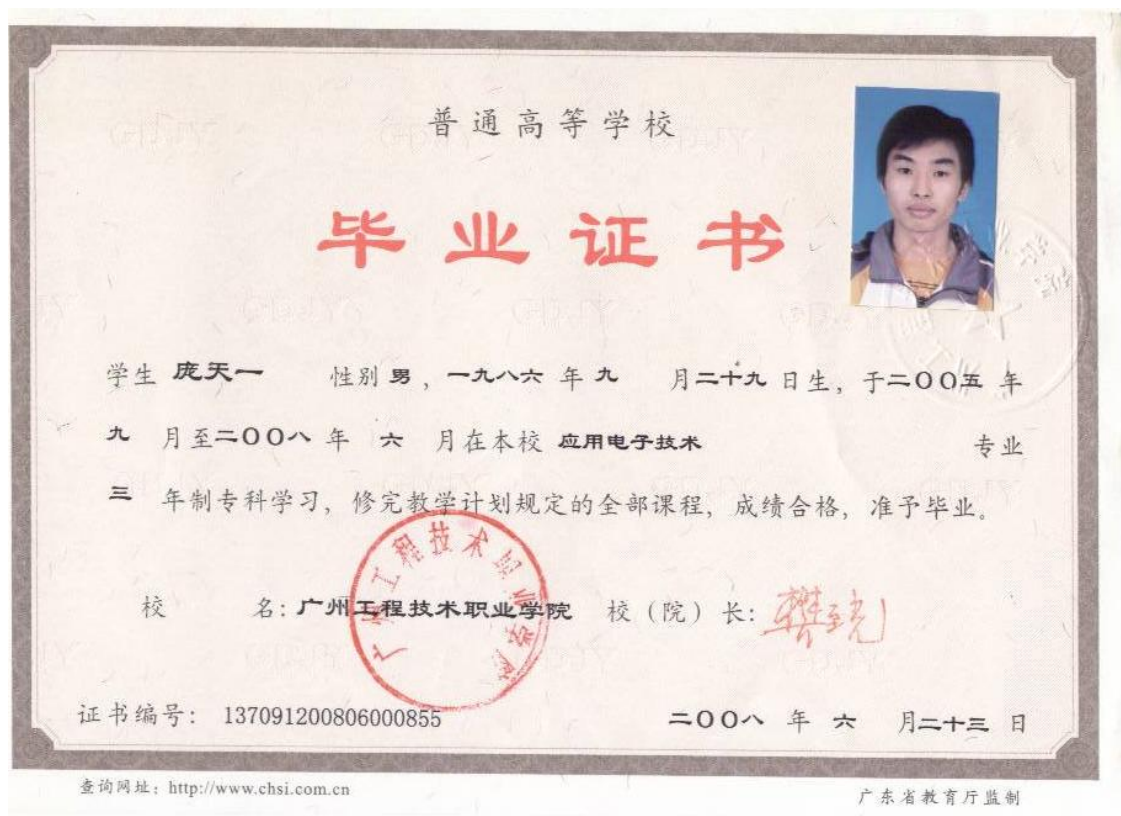 普通高等学校
毕业证书
学生 庞天一 性别 男，一九八六 年 九 月二十九 日生，于二〇〇五 年
九 月至二〇〇八 年 六 月在本校 应用电子技术 专业
三 年制专科学习，修完教学计划规定的全部课程，成绩合格，准予毕业。
广州工程技术职业学院
校 名：广州工程技术职业学院 校（院）长：
证书编号： 137091200806000855 二〇〇八 年 六 月二十三 日
查询网址：http://www.chsi.com.cn 广东省教育厅监制